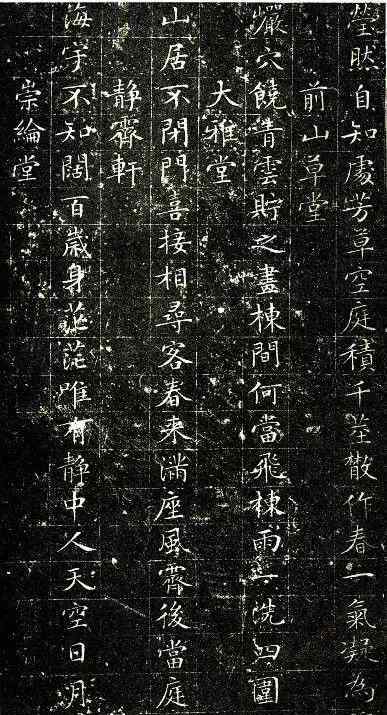 瑩然自知處芳草空庭積千莖散作春一氣凝為
前山草堂
巖穴饒青雲貯之畫棟間何當飛棟雨一洗四圍
大雅堂
山居不閉門喜接相尋客春來滿座風霽後當庭
靜霽軒
海宇不知闊百歲身茫茫唯有靜中人天空日月
崇綸堂